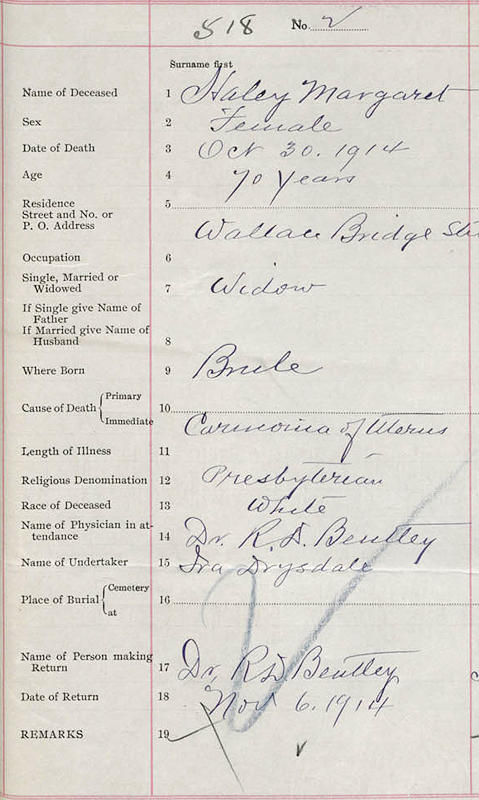 518 No. 2
Surname first
Name of Deceased 1 Haley Margaret
Sex 2 Female
Date of Death 3 Oct 30. 1914
Age 4 70 years
Residence
Street and No. or 5
P. O. Address
Wallace Bridge
Occupation 6
Single, Married or
Widowed 7 Widow
If Single give Name of
Father
If Married give Name of
Husband 8
Where Born 9 Brule
Cause of Death { Primary
Immediate 10
Carcinoma of Uterus
Length of Illness 11
Religious Denomination 12 Presbyterian
Race of Deceased 13 White
Name of Physician in at-
tendance 14 Dr. R. D. Bentley
Name of Undertaker 15 Ira Drysdale
Place of Burial { Cemetery
at 16
Name of Person making
Return 17 Dr. R D Bentley
Date of Return 18 Nov 6. 1914
REMARKS 19